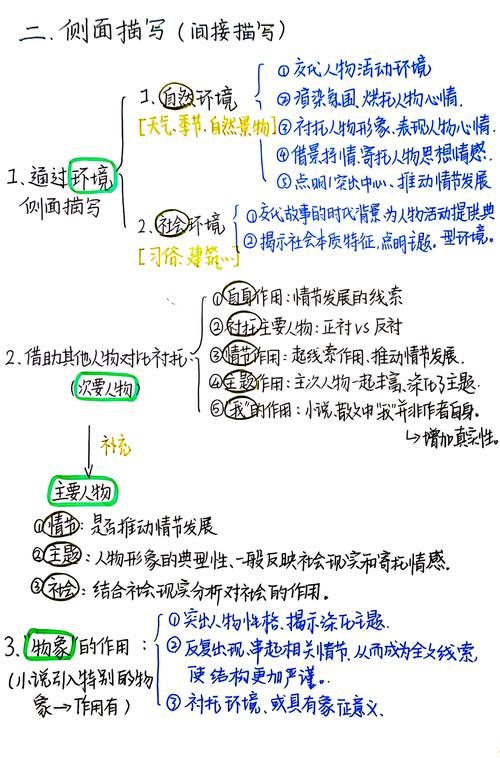 二. 侧面描写(间接描写)
1. 通过环境
侧面描写
1. 自然环境
[天气.季节.自然景物]
① 交代人物活动环境
② 渲染氛围、烘托人物心情.
③ 衬托人物形象、表现人物心情.
④ 借景抒情、寄托人物思想情感.
⑤ 点明/突出中心、推动情节发展
2. 社会环境
[习俗.建筑...]
① 交代故事的时代背景、为人物活动提供典
型环境.
② 揭示社会本质特征,点明主题.
2. 借助其他人物对比衬托
(次要人物)
① 自身作用:情节发展的线索
② 衬托主要人物:正衬 vs 反衬
③ 情节作用:起线索作用、推动情节发展.
④ 主题作用:主次人物一起丰富、深化了主题.
⑤ "我"的作用:小说、散文中"我"并非作者自身.
↳增加真实性.
补充
主要人物
① 情节:是否推动情节发展
② 主题:人物形象的典型性、一般反映社会现实和寄托情感.
③ 社会:结合社会现实分析对社会的作用.
3. "物象"的作用:
(小说引入特别的物
象→作用有)
① 突出人物性格、揭示深化主题.
② 反复出现、串起相关情节、从而成为全文线索
使结构更加严谨.
③ 衬托环境、或具有象征意义.